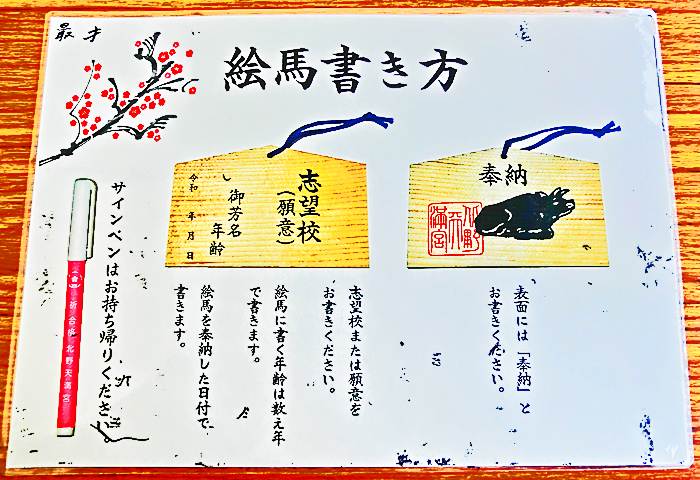 最才
絵馬書き方
奉納
北野天満宮
表面には「奉納」と
お書きください。
志望校
(願意)
御芳名 年齢
令和 年 月 日
志望校または願意を
お書きください。
絵馬に書く年齢は数え年
で書きます。
絵馬を奉納した日付で、
書きます。
サインペンはお持ち帰りください。
祈合格 北野天満宮